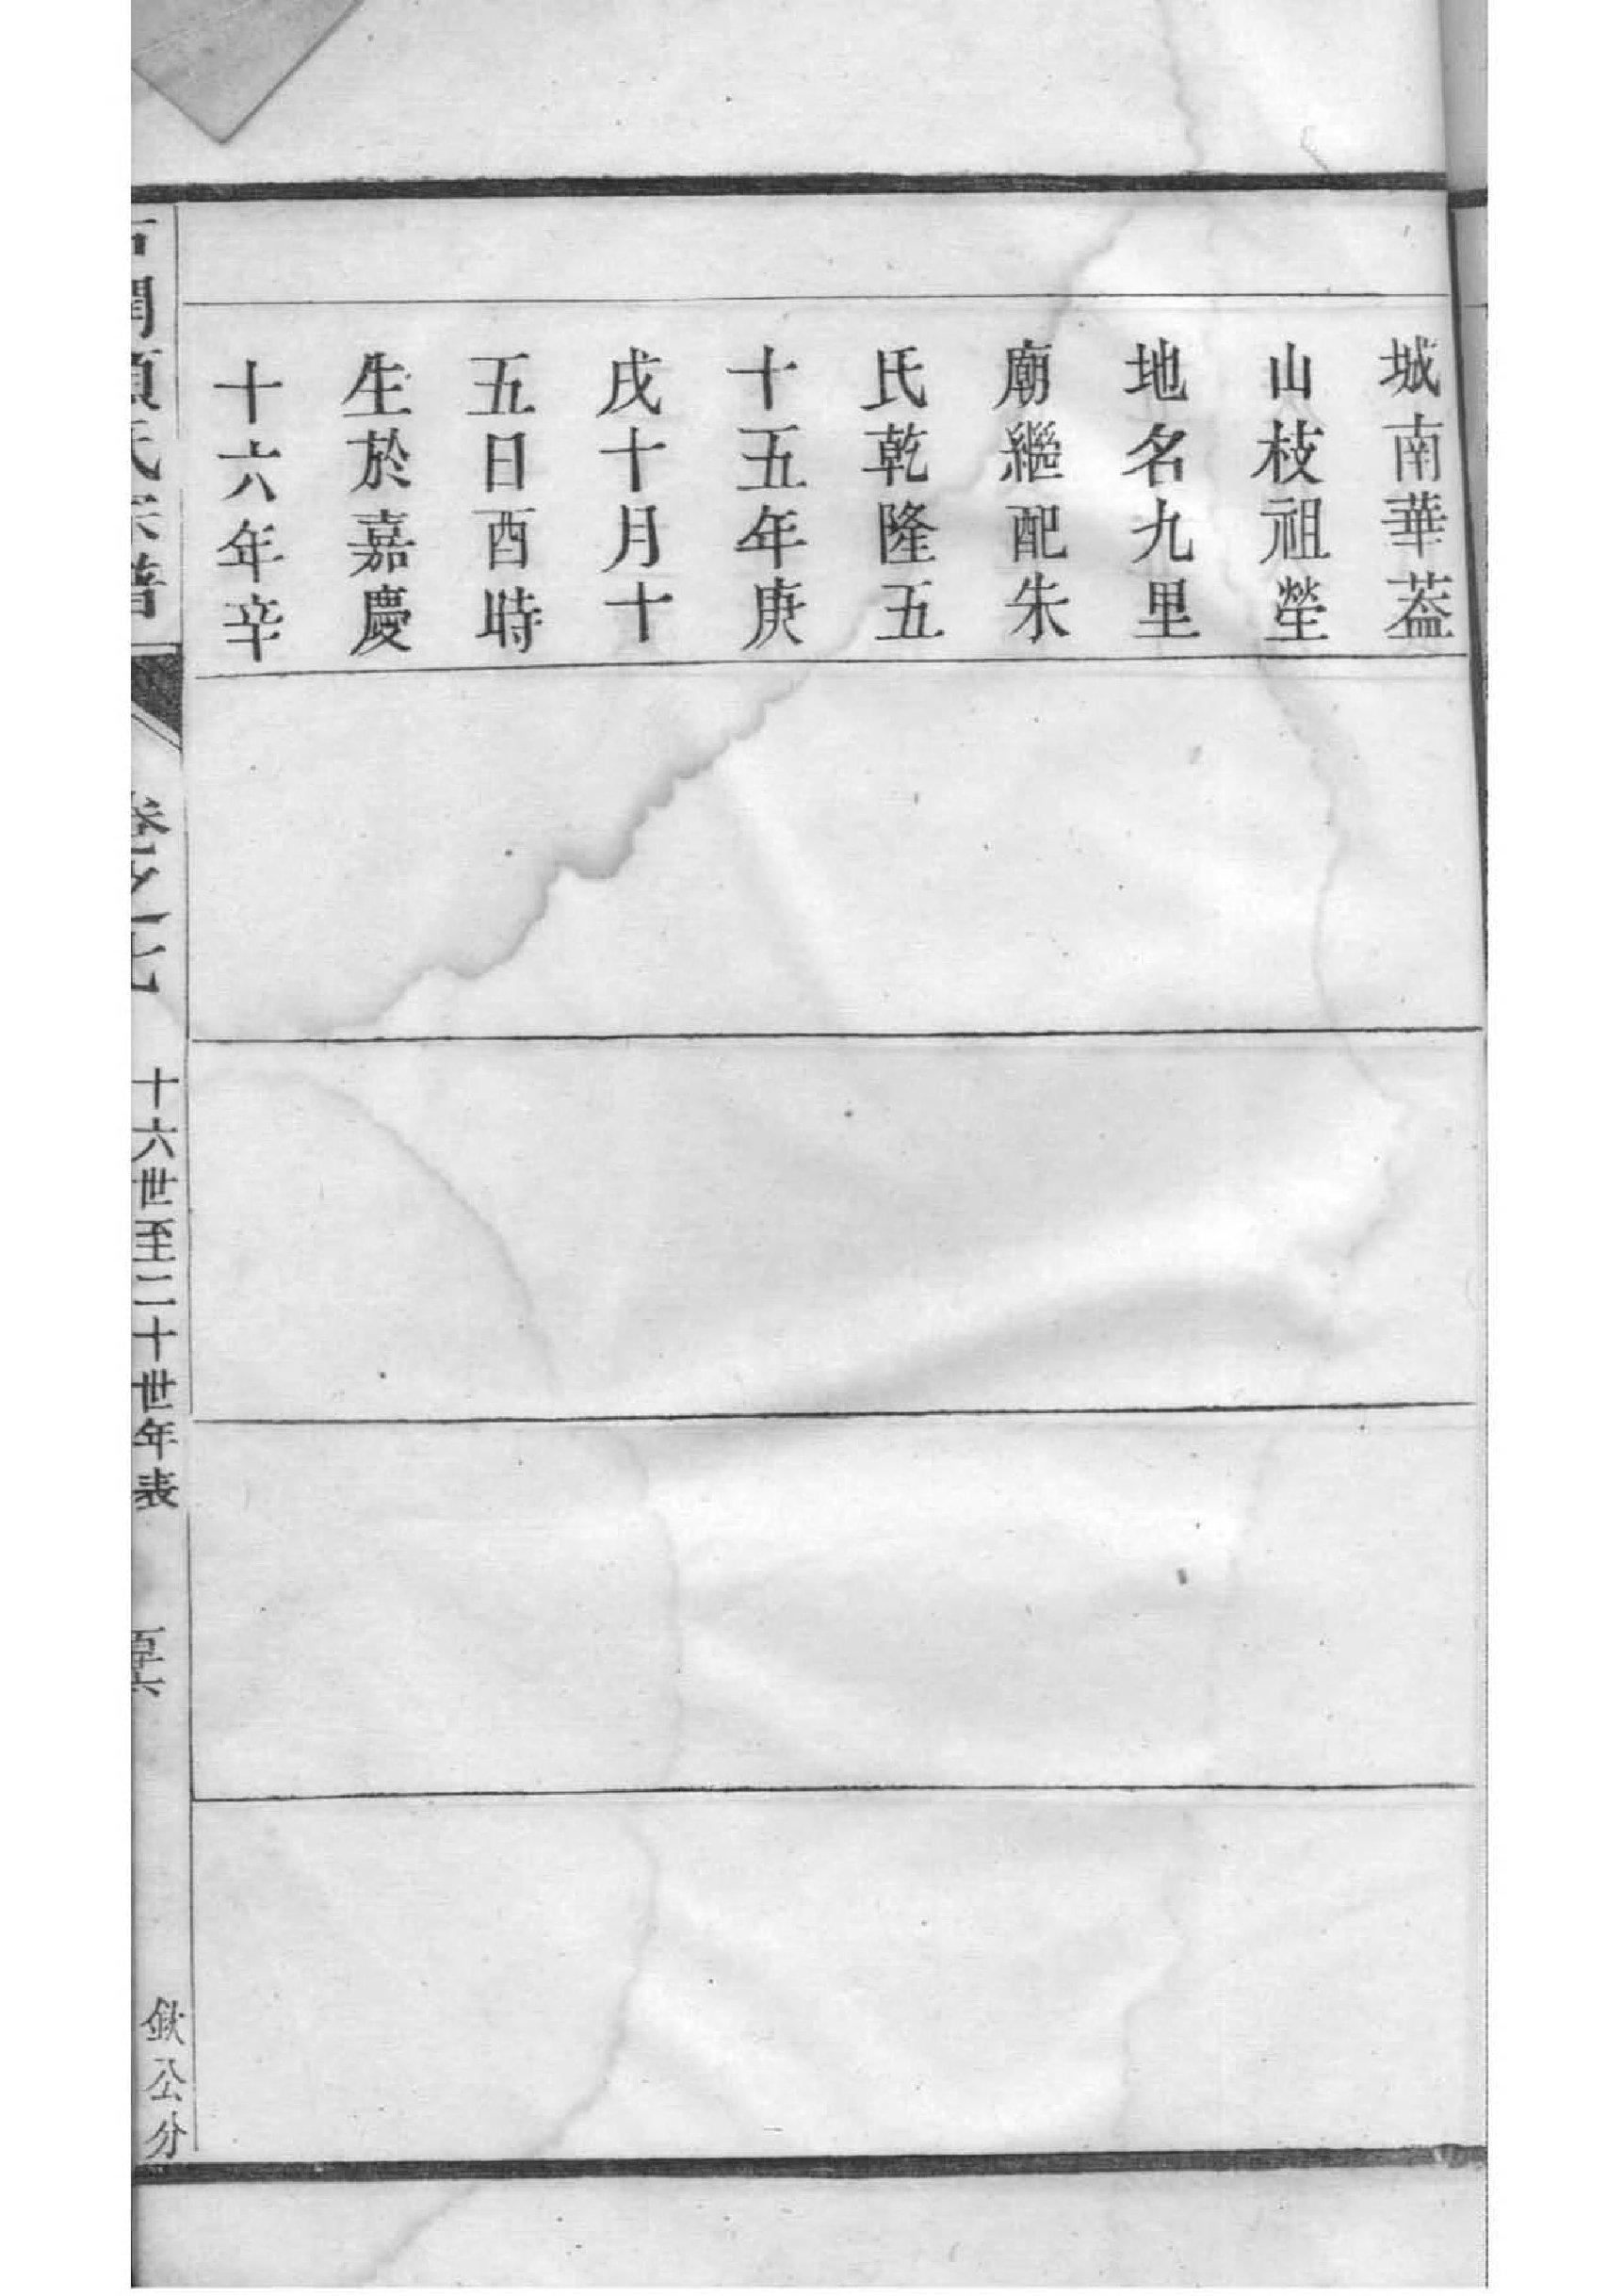 城南華葢
山枝祖塋
地名九里
廟繼配朱
氏乾隆五
十五年庚
戌十月十
五日酉時
生於嘉慶
十六年辛
氏宗譜
卷之十七
十六世至二十世年表
欽公分